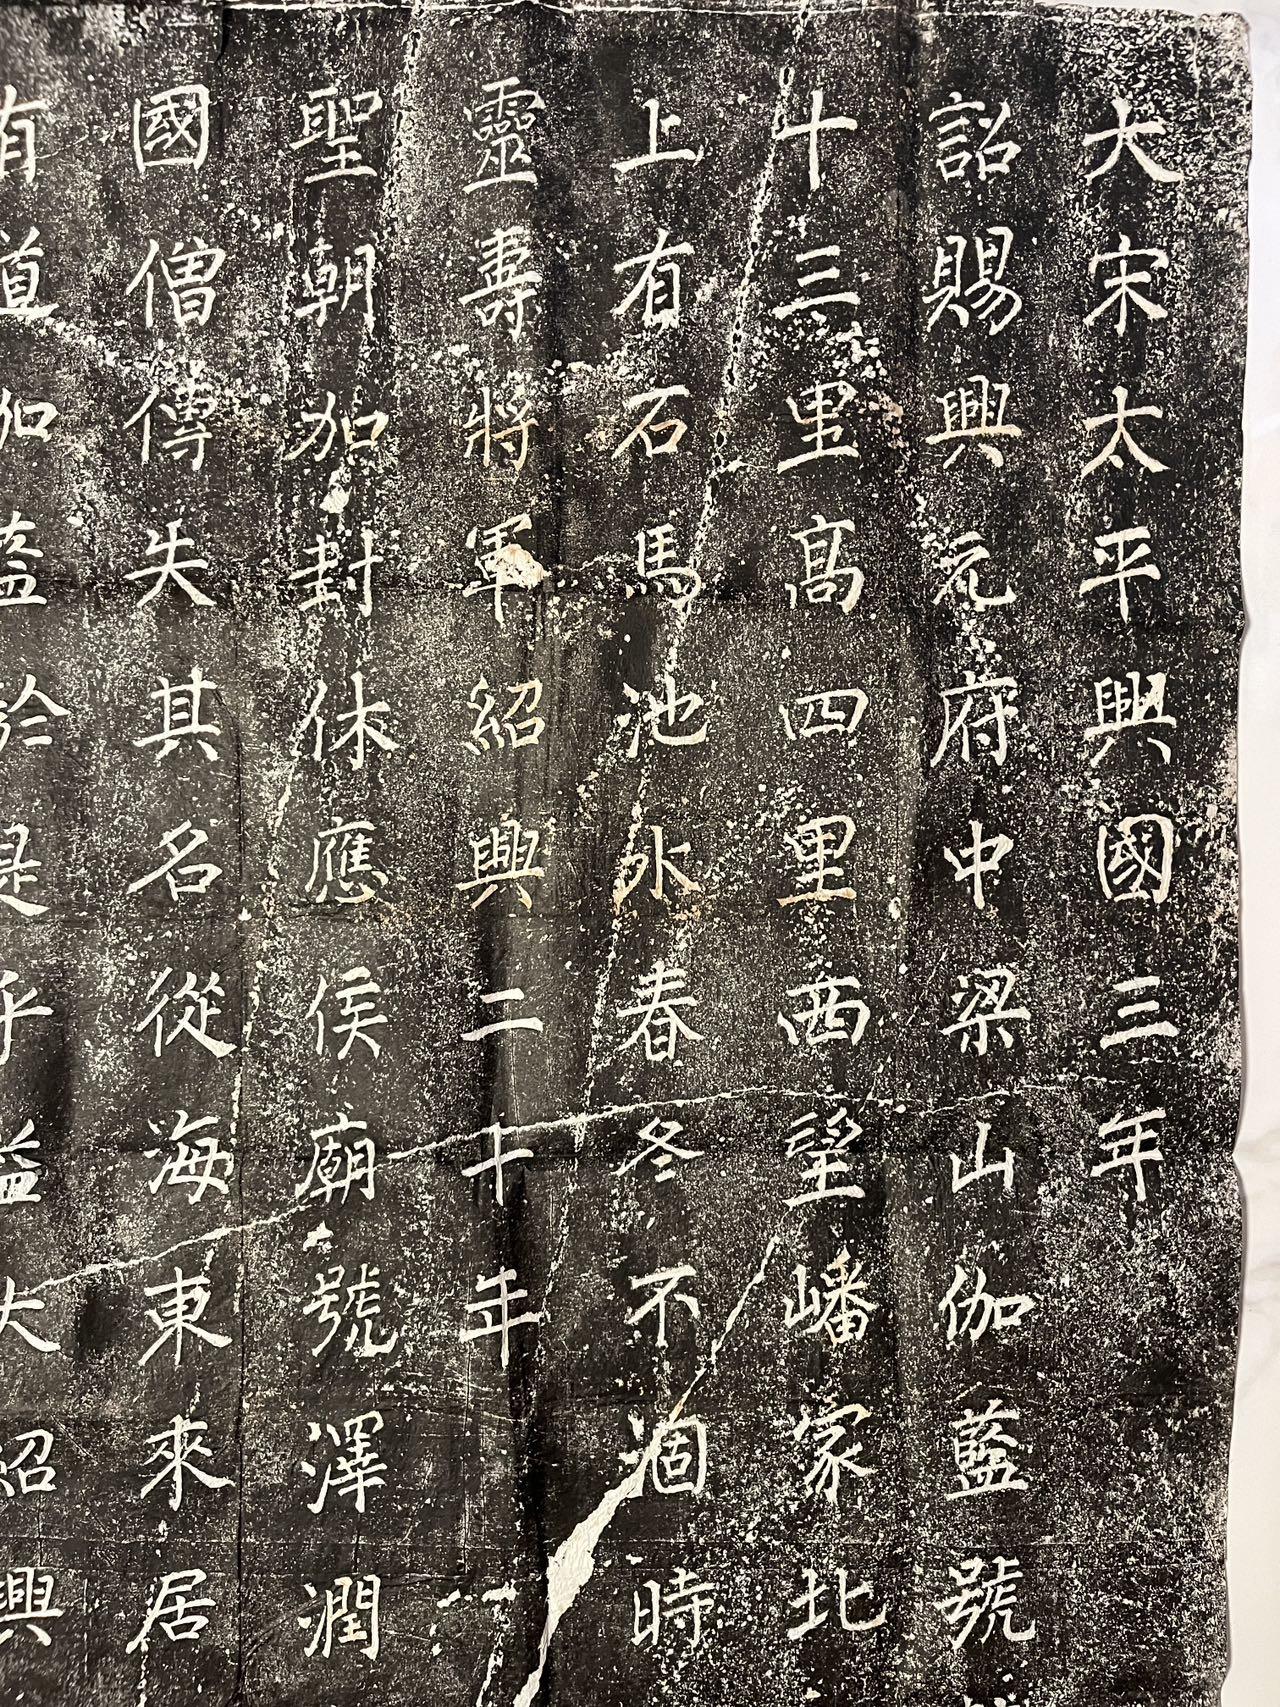 大宋太平興國三年
詔賜興元府中梁山伽藍號
十三里高四里西望嶓冢北
上有石馬池水春冬不涸時
靈壽將軍紹興二十年
聖朝加封休應侯廟號澤潤
國僧傳失其名從海東來居
有道加益於是乎益大紹興